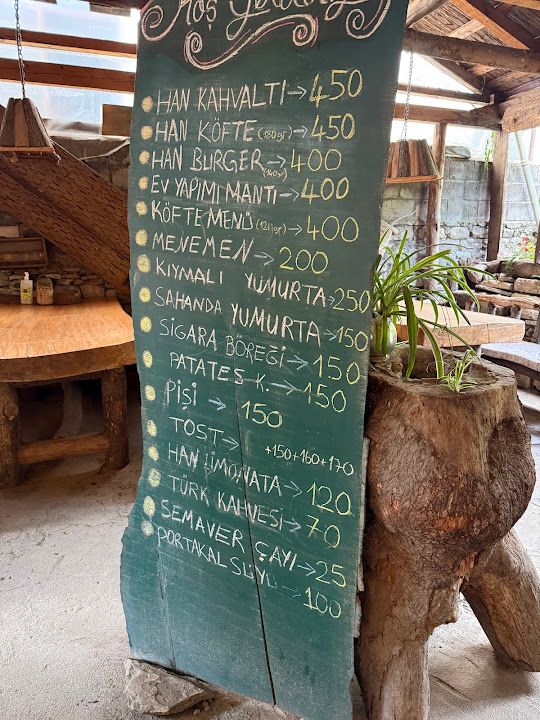 Hoş Geldiniz
HAN KAHVALTI → 450
HAN KÖFTE (180gr) → 450
HAN BURGER → 400
(140gr)
EV YAPIMI MANTI → 400
KÖFTE MENÜ (120gr) → 400
MENEMEN → 200
KIYMALI YUMURTA → 250
SAHANDA YUMURTA → 150
SİGARA BÖREĞİ → 150
PATATES K. → 150
PİŞİ → 150
TOST → +150+160+170
HAN LİMONATA → 120
TÜRK KAHVESİ → 70
SEMAVER ÇAYI → 25
PORTAKAL SUYU → 100